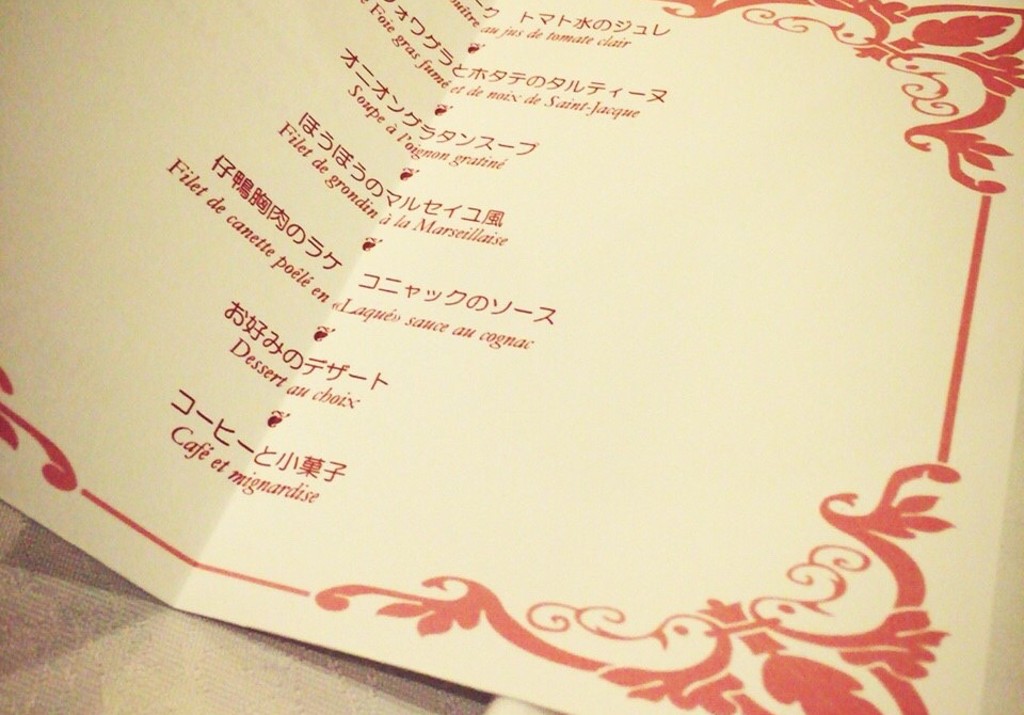 トマト水のジュレ
au jus de tomate clair
フォワグラとホタテのタルティーヌ
Foie gras fumé et de noix de Saint-Jacque
オニオングラタンスープ
Soupe à l'oignon gratiné
ほうぼうのマルセイユ風
Filet de grondin à la Marseillaise
仔鴨胸肉のラケ コニャックのソース
Filet de canette poêlé en «Laqué» sauce au cognac
お好みのデザート
Dessert au choix
コーヒーと小菓子
Café et mignardise